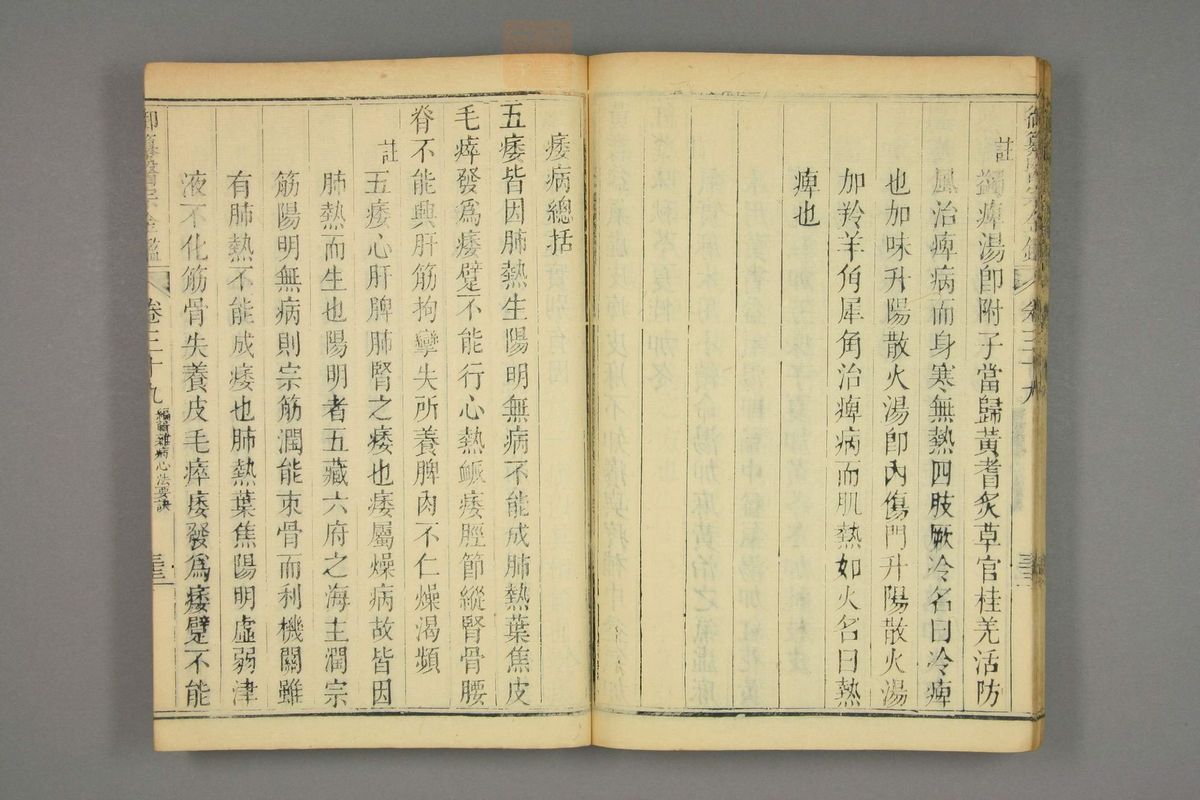 御纂醫宗金鑑 卷三十九
註
蠲痺湯卽附子當歸黃耆炙草官桂羌活防
風治痺病而身寒無熱四肢厥冷名曰冷痺
也加味升陽散火湯卽內傷門升陽散火湯
加羚羊角犀角治痺病而肌熱如火名曰熱
痺也
痿病總括
五痿皆因肺熱生陽明無病不能成肺熱葉焦皮
毛瘁發爲痿躄不能行心熱脈痿脛節縱腎骨腰
脊不能興肝筋拘攣失所養脾肉不仁燥渴頻
註
五痿心肝脾肺腎之痿也痿屬燥病故皆因
肺熱而生也陽明者五藏六府之海主潤宗
筋陽明無病則宗筋潤能束骨而利機關雖
有肺熱不能成痿也肺熱葉焦陽明虛弱津
液不化筋骨失養皮毛瘁痿發爲痿躄不能
御纂醫宗金鑑 卷三十九 編輯雜病心法要訣 三三